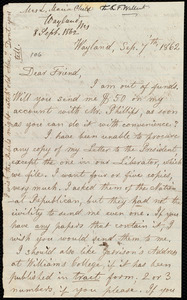 Mrs. L. Maria Child to R. F. Wallcut
Wayland, Ms
8 Sept. 1862.
Wayland, Sep. 7th 1862.
Dear Friend,
I am out of funds.
Will you send me $50 on my
account with Mr. Phillips, as soon
as you can do it with convenience?
I have been unable to procure
any copy of my Letter to the President
except the one in our Liberator, which
we file. I want four or five copies,
very much. I asked them of the National
Republican, but they had not the
civility to send me even one. If
you have any papers that contain it, I
wish you would send them to me.
I should also like Garrison's Address
at Williams College, if it has been
published in tract form. 2 or 3
numbers, if you please. If